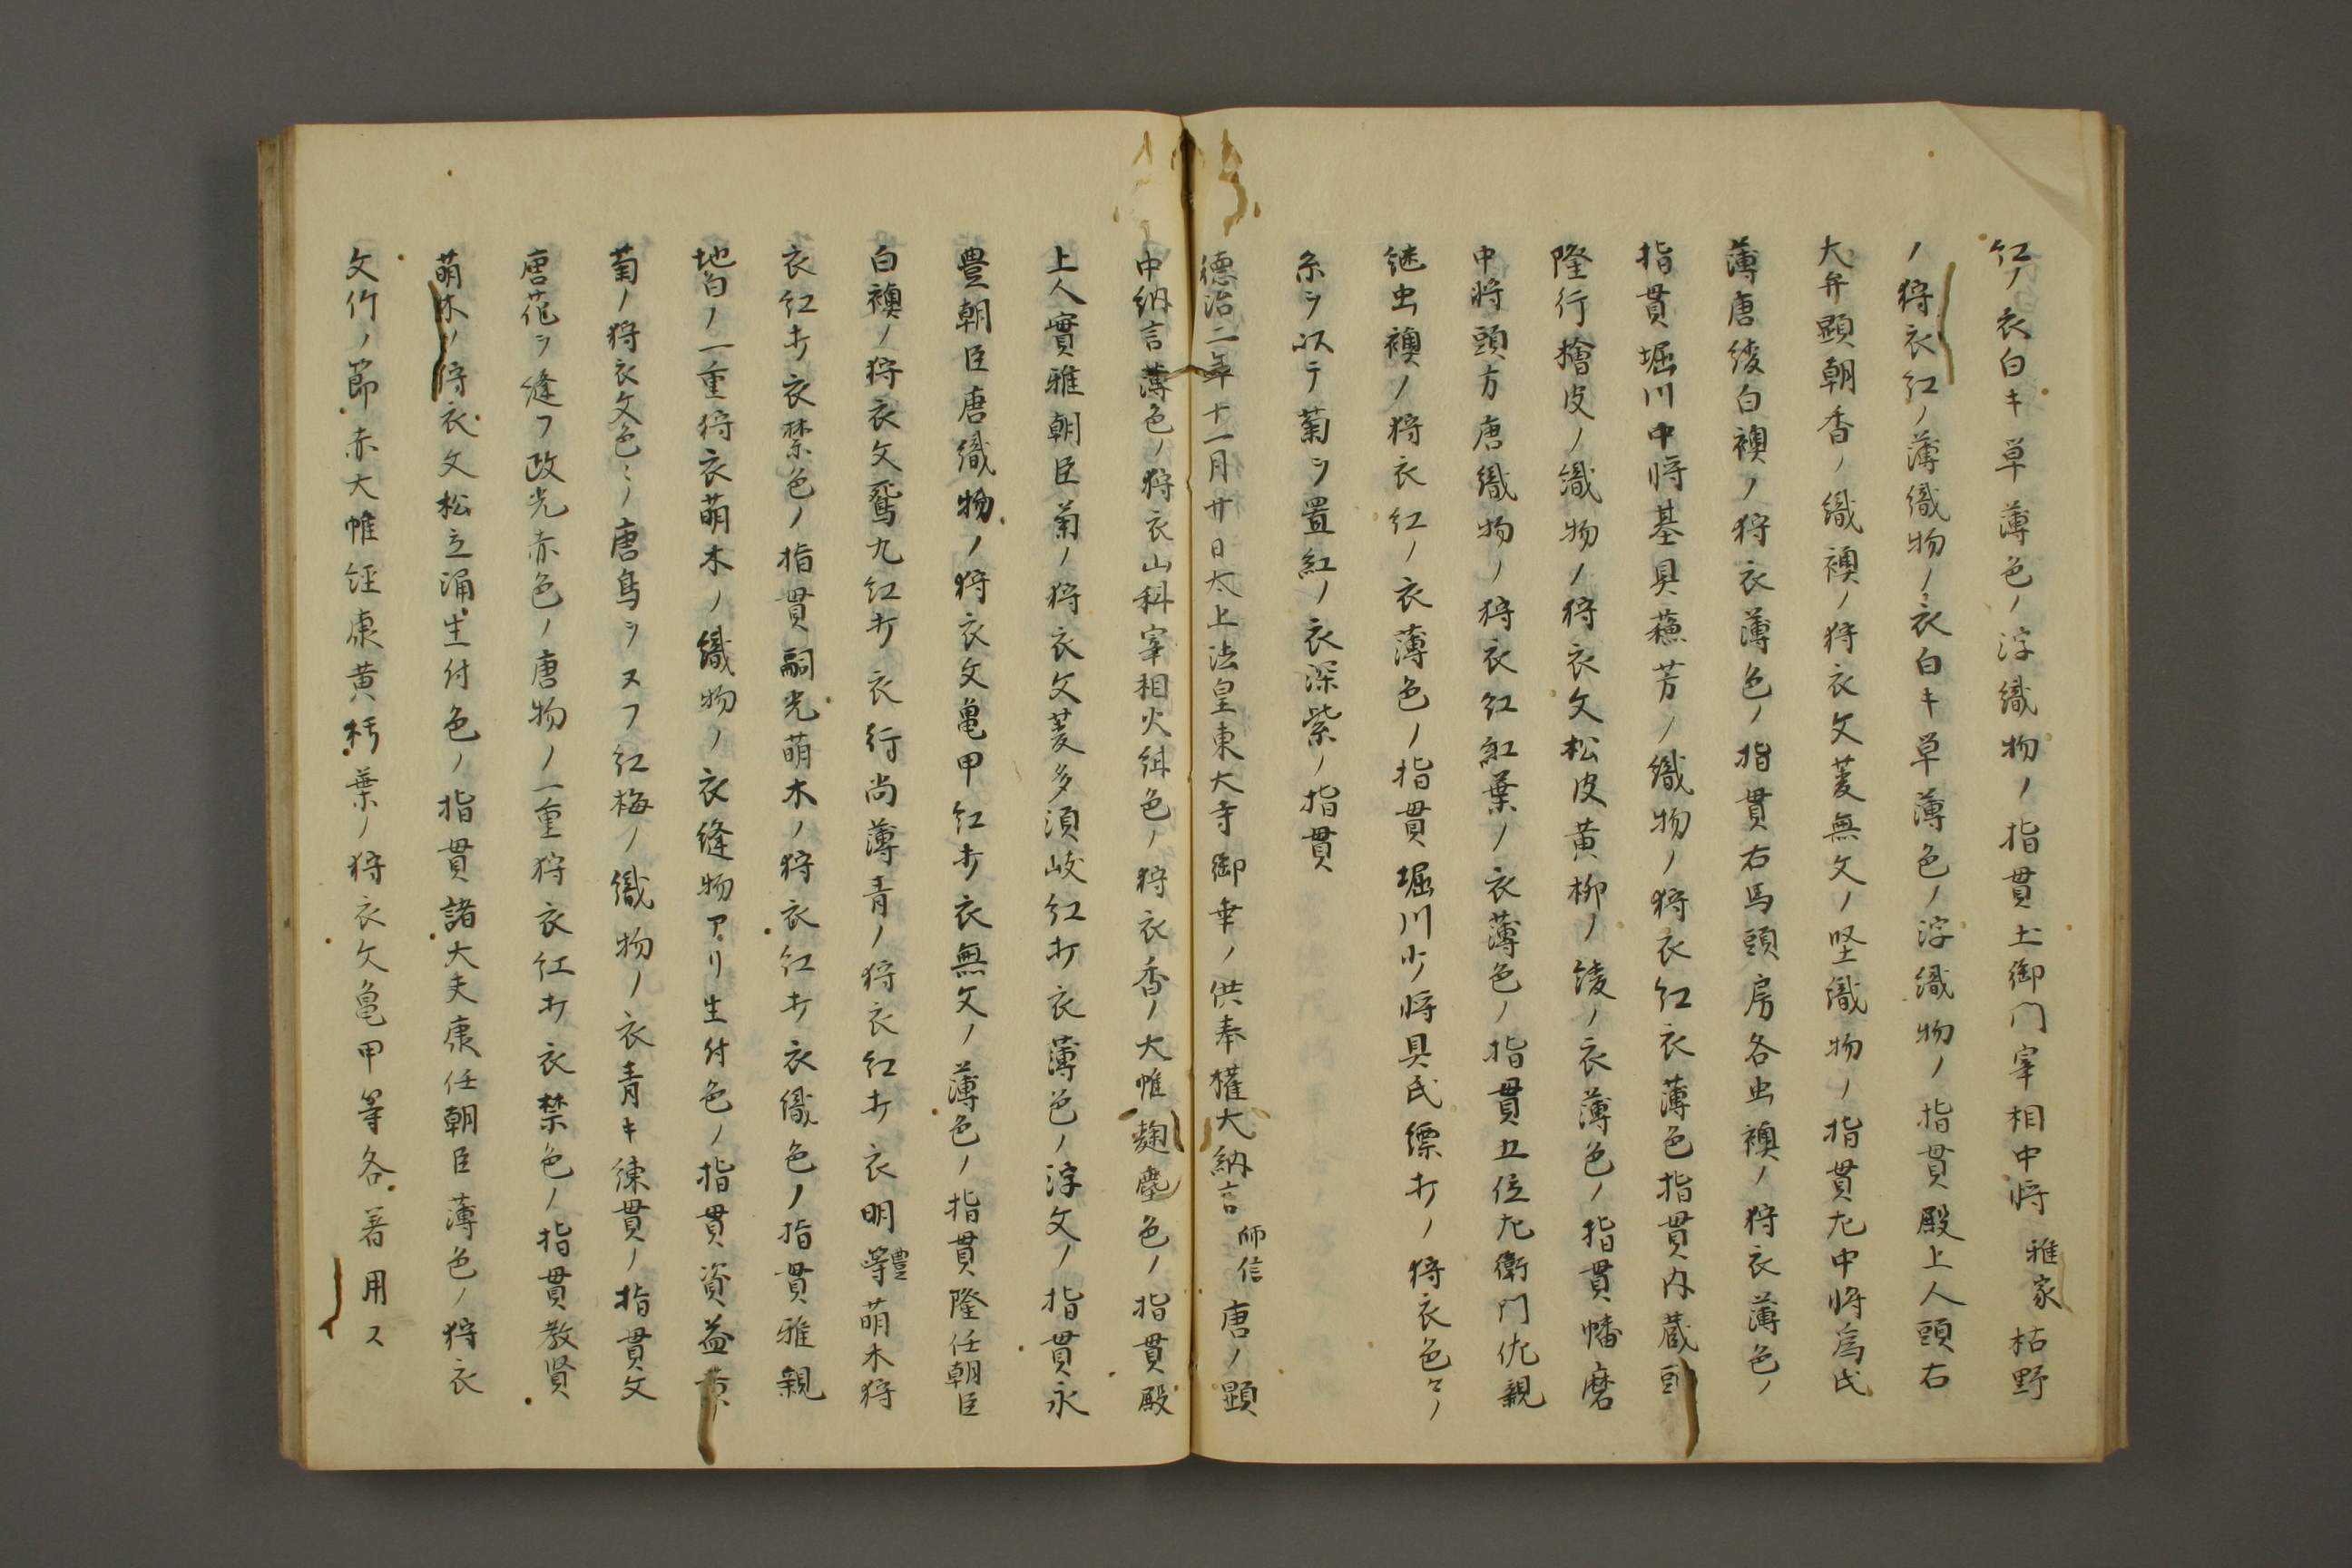 紅ノ衣白キ単薄色ノ浮織物ノ指貫土御門宰相中将雅家枯野
ノ狩衣紅ノ薄織物ノ衣白キ単薄色ノ浮織物ノ指貫殿上人頭右
大弁顕朝香ノ織襖ノ狩衣文菱無文ノ堅織物ノ指貫左中将為氏
薄唐綾白襖ノ狩衣薄色ノ指貫右馬頭房各虫襖ノ狩衣薄色ノ
指貫堀川中将基具蘓芳ノ織物ノ狩衣紅衣薄色指貫内蔵頭
隆行檜皮ノ織物ノ狩衣文松皮黄柳ノ綾ノ衣薄色ノ指貫幡磨
中将頭方唐織物ノ狩衣紅紅葉ノ衣薄色ノ指貫五位左衛門佐親
継虫襖ノ狩衣紅ノ衣薄色ノ指貫堀川少将具氏縹打ノ狩衣色々ノ
糸ヲ以テ菊ヲ置紅ノ衣深紫ノ指貫
徳治二年十一月廿日太上法皇東大寺御幸ノ供奉権大納言師信唐ノ顕
中納言薄色ノ狩衣山科宰相火色ノ狩衣香ノ大帷麹塵色ノ指貫殿
上人實雅朝臣菊ノ狩衣文菱多須岐紅打衣薄色ノ浮文ノ指貫永
豊朝臣唐織物ノ狩衣文亀甲紅打衣無文ノ薄色ノ指貫隆任朝臣
白襖ノ狩衣文鴛丸紅打衣行尚薄青ノ狩衣紅打衣明豊等萌木狩
衣紅打衣禁色ノ指貫嗣光萌木ノ狩衣紅打衣織色ノ指貫雅親
地白ノ一重狩衣萌木ノ織物ノ衣縫物アリ生付色ノ指貫資益黄
菊ノ狩衣文色々ノ唐鳥ヲヌフ紅梅ノ織物ノ衣青キ練貫ノ指貫文
唐花ヲ縫フ政光赤色ノ唐物ノ一重狩衣紅打衣禁色ノ指貫教賢
萌木ノ狩衣文松立涌生付色ノ指貫諸大夫康任朝臣薄色ノ狩衣
文竹ノ節赤大帷経康黄朽葉ノ狩衣文亀甲等各著用ス